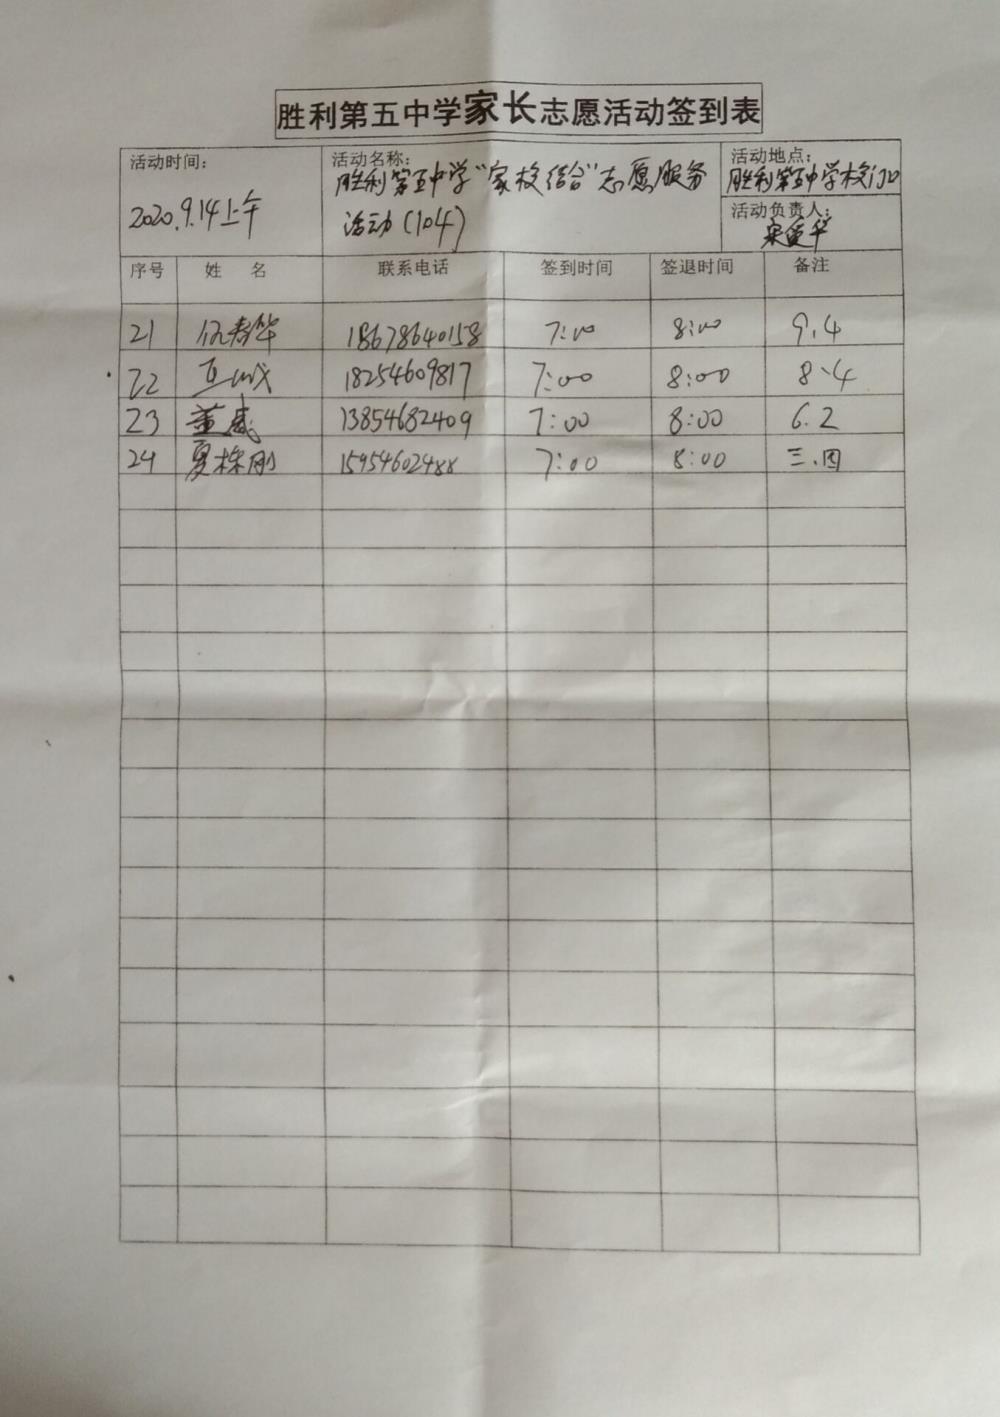 胜利第五中学家长志愿活动签到表
活动时间：
2020.9.14上午
活动名称：
胜利第五中学“家校结合”志愿服务
活动(104)
活动地点：
胜利第五中学校门口
活动负责人：
序号 姓 名 联系电话 签到时间 签退时间 备注
21 18678640158 7:00 8:00 9.4
22 18254609817 7:00 8:00 8、4
23 董威 13854682409 7:00 8:00 6.2
24 夏栋刚 15954602488 7:00 8:00 三.四